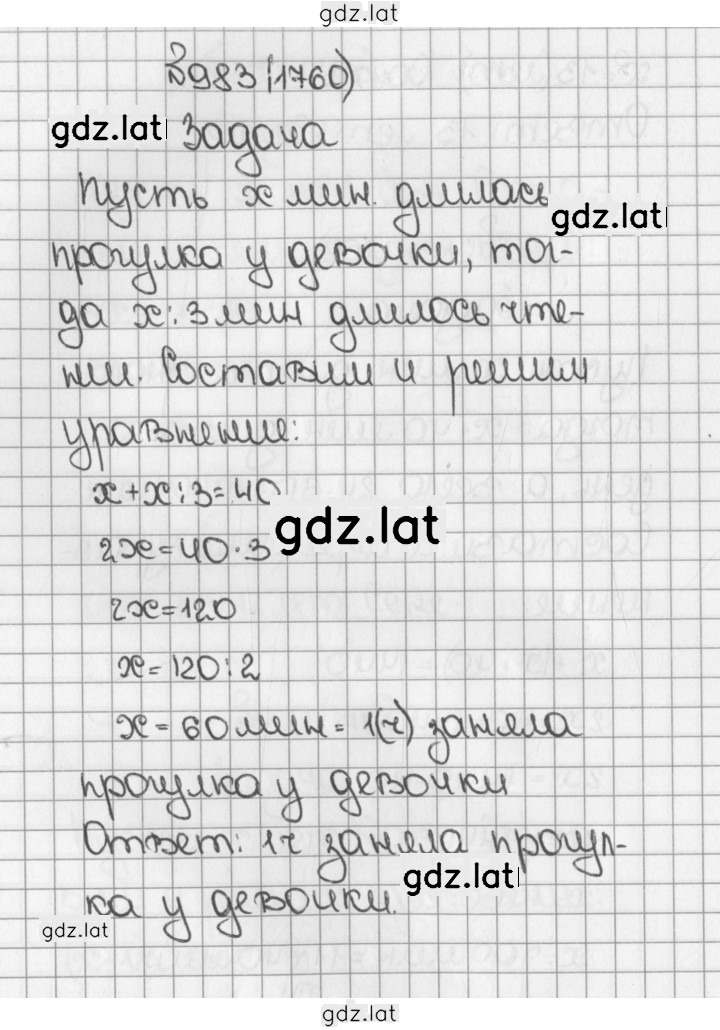 gdz.lat
№983 (1760)
gdz.lat
Задача
Пусть x мин. длилась
gdz.lat
прогулка у девочки, тог-
да x:3 мин длилось чте-
нии. Составим и решим
уравнение:
x+x:3=40
gdz.lat
2x=40·3
2x=120
x=120:2
x=60 мин=1(ч) заняла
прогулка у девочки
Ответ: 1ч заняла прогул-
gdz.lat
ка у девочки.
gdz.lat
gdz.lat